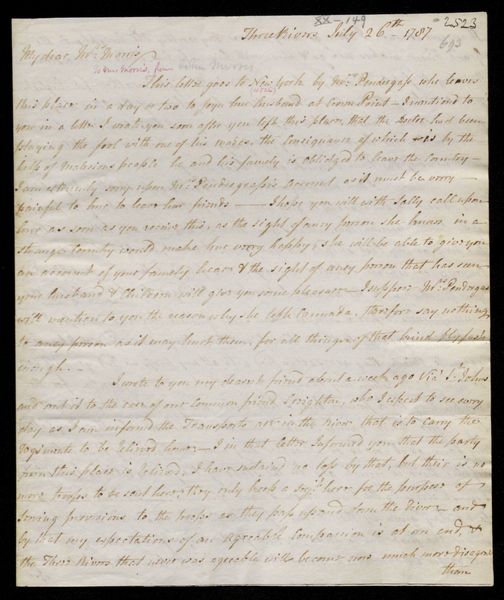 XX-149
2523
693
Three Rivers July 26th 1787
My dear Mrs Morris
To Mrs Morris, from
This letter goes to New York by Mrs Pendergass who leaves
this place in a day or two to joyn her husband at Crown Point — I mentiond to
you in a letter I wrote you soon after you left this place, that the Doctor had been
playing the fool with one of his maids. the Consiquance of which is by the
help of Malesious people he and his famely is obliedged to leave the Country —
I am extreamly sorry upon Mrs Pendergass's account as it must be verry
painful to her to leave her friends — I hope you will with Sally call upon
her as soon as you receive this, as the sight of aney person she knows in a
strange Country would make her verry happy, she will be able to give you
an account of your famely hear & the sight of aney person that has seen
your husband & Children will give you some pleasure — I suppose Mrs Pendergass
will mention to you the reason why she left Cannada, therefor say nothing
to aney person as it may hurt them, for all things of that kind flys fast
enough —
I wrote to you my dearest friend about a week ago Via St Johns
and put it to the care of our Common friend Creighton, who I expect to see every
day as I am informd the Transports are in the River that is to carry the
Regiments to be releived home — I in that letter Informd you that the party
from this place is releived, I have sustaind no loss by that, but their is no
more troops to be sent hear, they only keep a Sejt here for the purpose of
serving provisions to the troops as they pass up and down the River and
by that my expectations of an agreable Companion is at an end, &
the Three Rivers that never was agreable will become now much more disagree
than